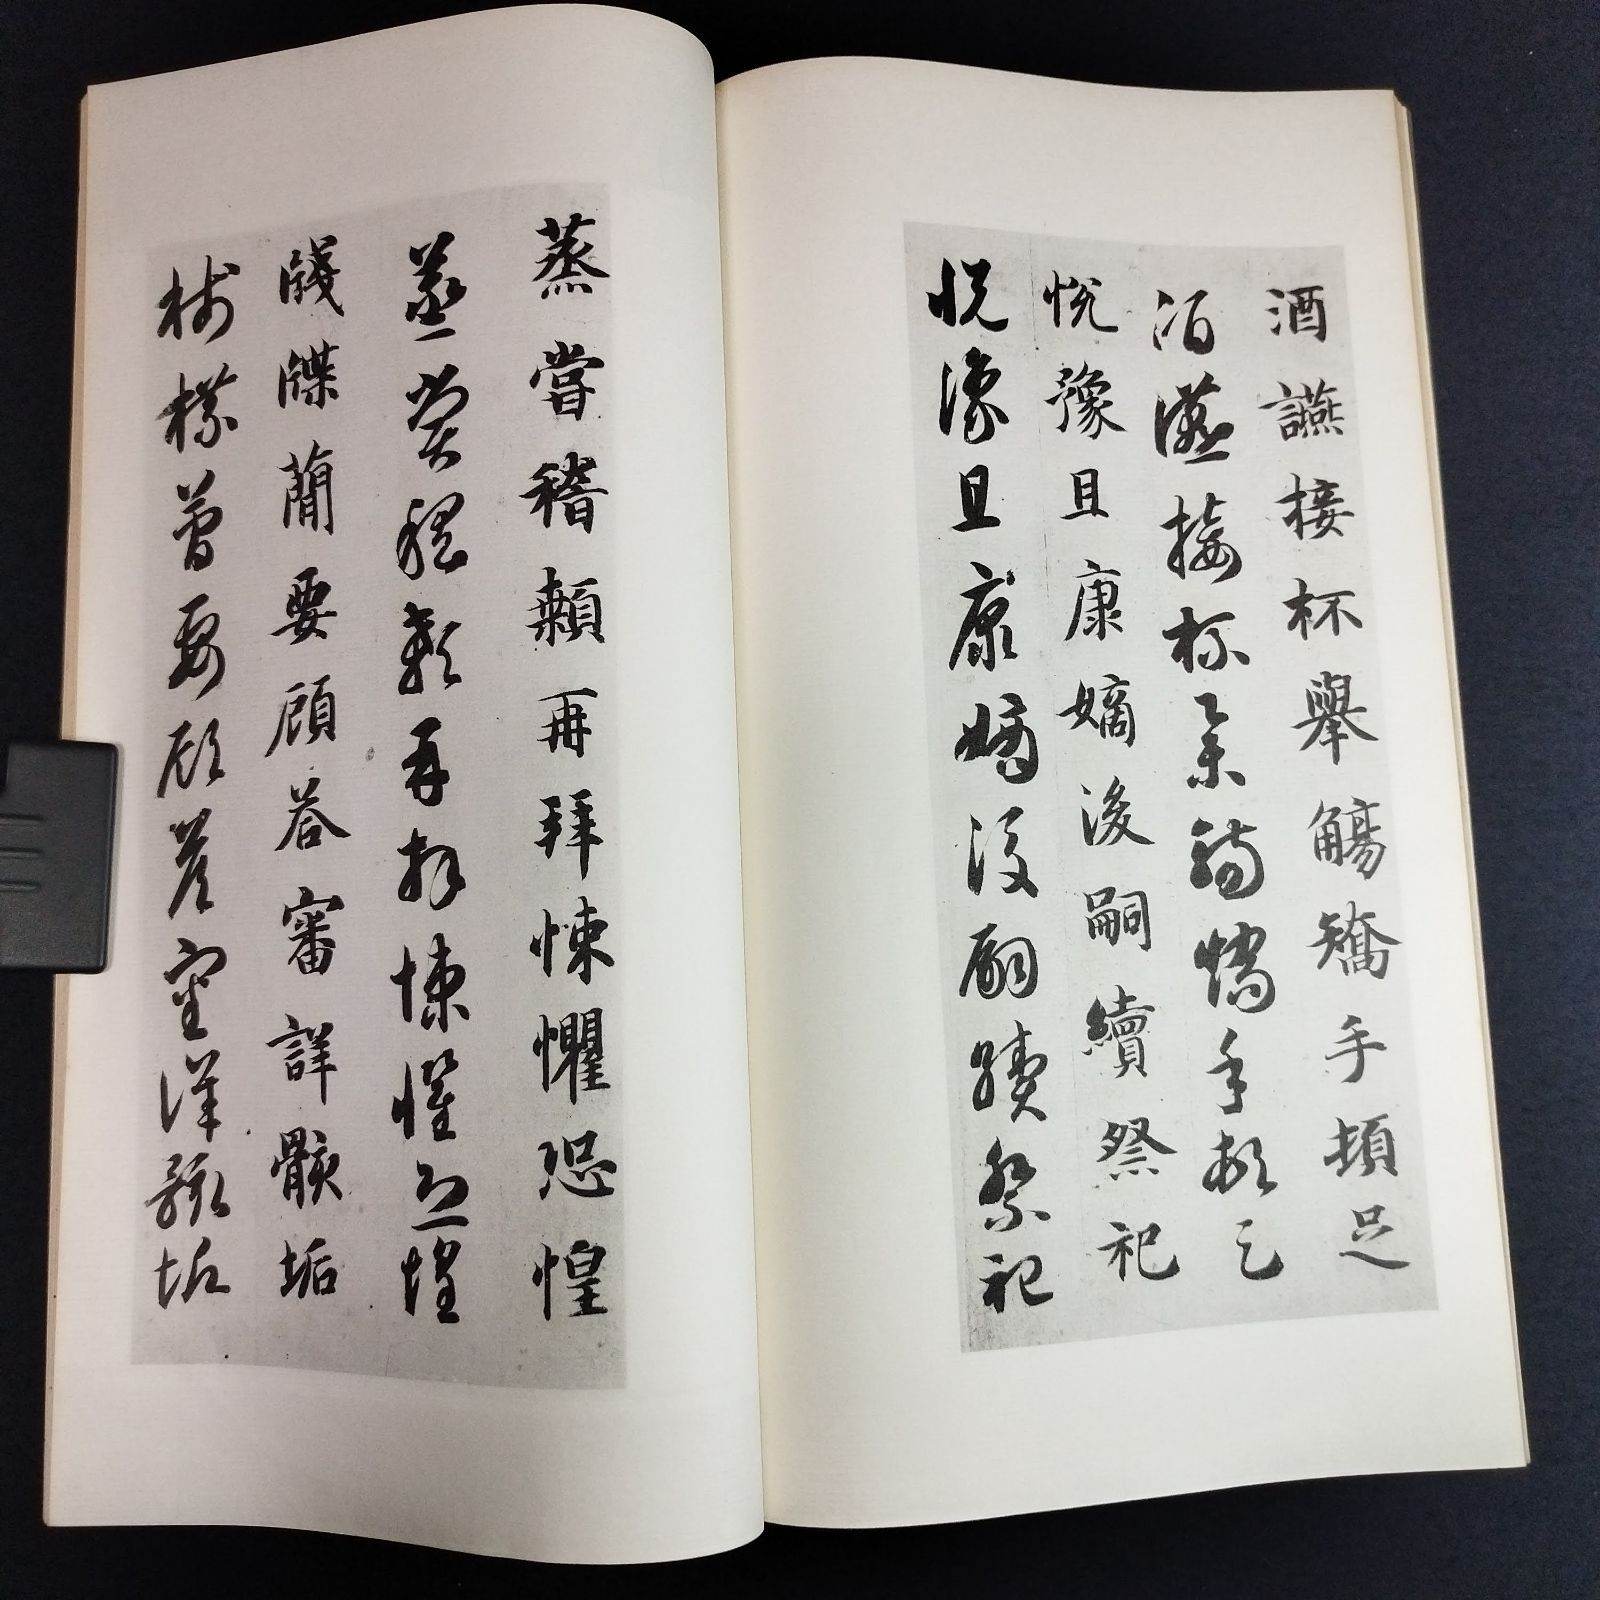 酒讌接杯舉觴矯手頓足
酒讌接杯舉觴矯手頓足
悅豫且康嫡後嗣續祭祀
悅豫且康嫡後嗣續祭祀
蒸嘗稽顙再拜悚懼恐惶
蒸嘗稽顙再拜悚懼恐惶
牋牒蕳要顧荅審詳骸垢
牋牒簡要顧答審詳骸垢